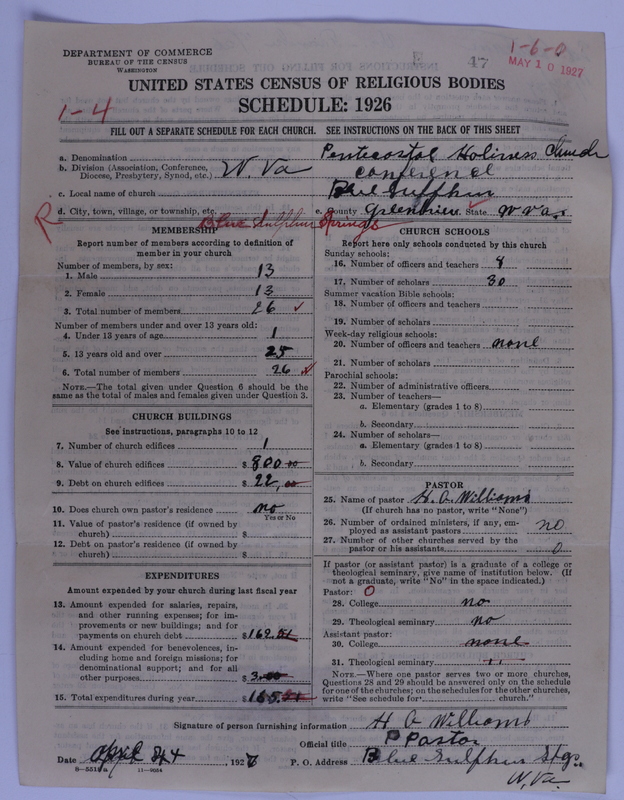 DEPARTMENT OF COMMERCE
BUREAU OF THE CENSUS
WASHINGTON
47
1-6-0
MAY 10 1927
UNITED STATES CENSUS OF RELIGIOUS BODIES
SCHEDULE: 1926
1-4
FILL OUT A SEPARATE SCHEDULE FOR EACH CHURCH. SEE INSTRUCTIONS ON THE BACK OF THIS SHEET
a. Denomination Pentecostal Holiness Church
b. Division (Association, Conference, Diocese, Presbytery, Synod, etc.) W. Va conference
c. Local name of church Blue Sulphur
d. City, town, village, or township, etc. Blue Sulphur Springs
e. County Greenbrier State W Va.
R
MEMBERSHIP
Report number of members according to definition of
member in your church
Number of members, by sex:
1. Male 13
2. Female 13
3. Total number of members 26
Number of members under and over 13 years old:
4. Under 13 years of age 1
5. 13 years old and over 25
6. Total number of members 26
NOTE.—The total given under Question 6 should be the
same as the total of males and females given under Question 3.
CHURCH BUILDINGS
See instructions, paragraphs 10 to 12
7. Number of church edifices 1
8. Value of church edifices $ 800 00
9. Debt on church edifices $ 22.00
10. Does church own pastor's residence no
Yes or No
11. Value of pastor's residence (if owned by
church) $
12. Debt on pastor's residence (if owned by
church) $
EXPENDITURES
Amount expended by your church during last fiscal year
13. Amount expended for salaries, repairs,
and other running expenses; for im-
provements or new buildings; and for
payments on church debt $ 162.
14. Amount expended for benevolences, in-
cluding home and foreign missions; for
denominational support; and for all
other purposes $ 3.00
15. Total expenditures during year $ 165.
CHURCH SCHOOLS
Report here only schools conducted by this church
Sunday schools:
16. Number of officers and teachers 8
17. Number of scholars 30
Summer vacation Bible schools:
18. Number of officers and teachers
19. Number of scholars
Week-day religious schools:
20. Number of officers and teachers none
21. Number of scholars
Parochial schools:
22. Number of administrative officers
23. Number of teachers—
a. Elementary (grades 1 to 8)
b. Secondary
24. Number of scholars—
a. Elementary (grades 1 to 8)
b. Secondary
PASTOR
25. Name of pastor H. A. Williams
(If church has no pastor, write "None")
26. Number of ordained ministers, if any, em-
ployed as assistant pastors no
27. Number of other churches served by the
pastor or his assistants 0
If pastor (or assistant pastor) is a graduate of a college or
theological seminary, give name of institution below. (If
not a graduate, write "No" in the space indicated.)
Pastor: 0
28. College no
29. Theological seminary no
Assistant pastor:
30. College none
31. Theological seminary "
NOTE.—Where one pastor serves two or more churches,
Questions 28 and 29 should be answered only on the schedule
for one of the churches; on the schedules for the other churches,
write "See schedule for church."
Signature of person furnishing information H A Williams
Official title Pastor
Date April 192 7 P. O. Address Blue Sulphur Spgs.
W. Va.
8-5515 a 11-9054